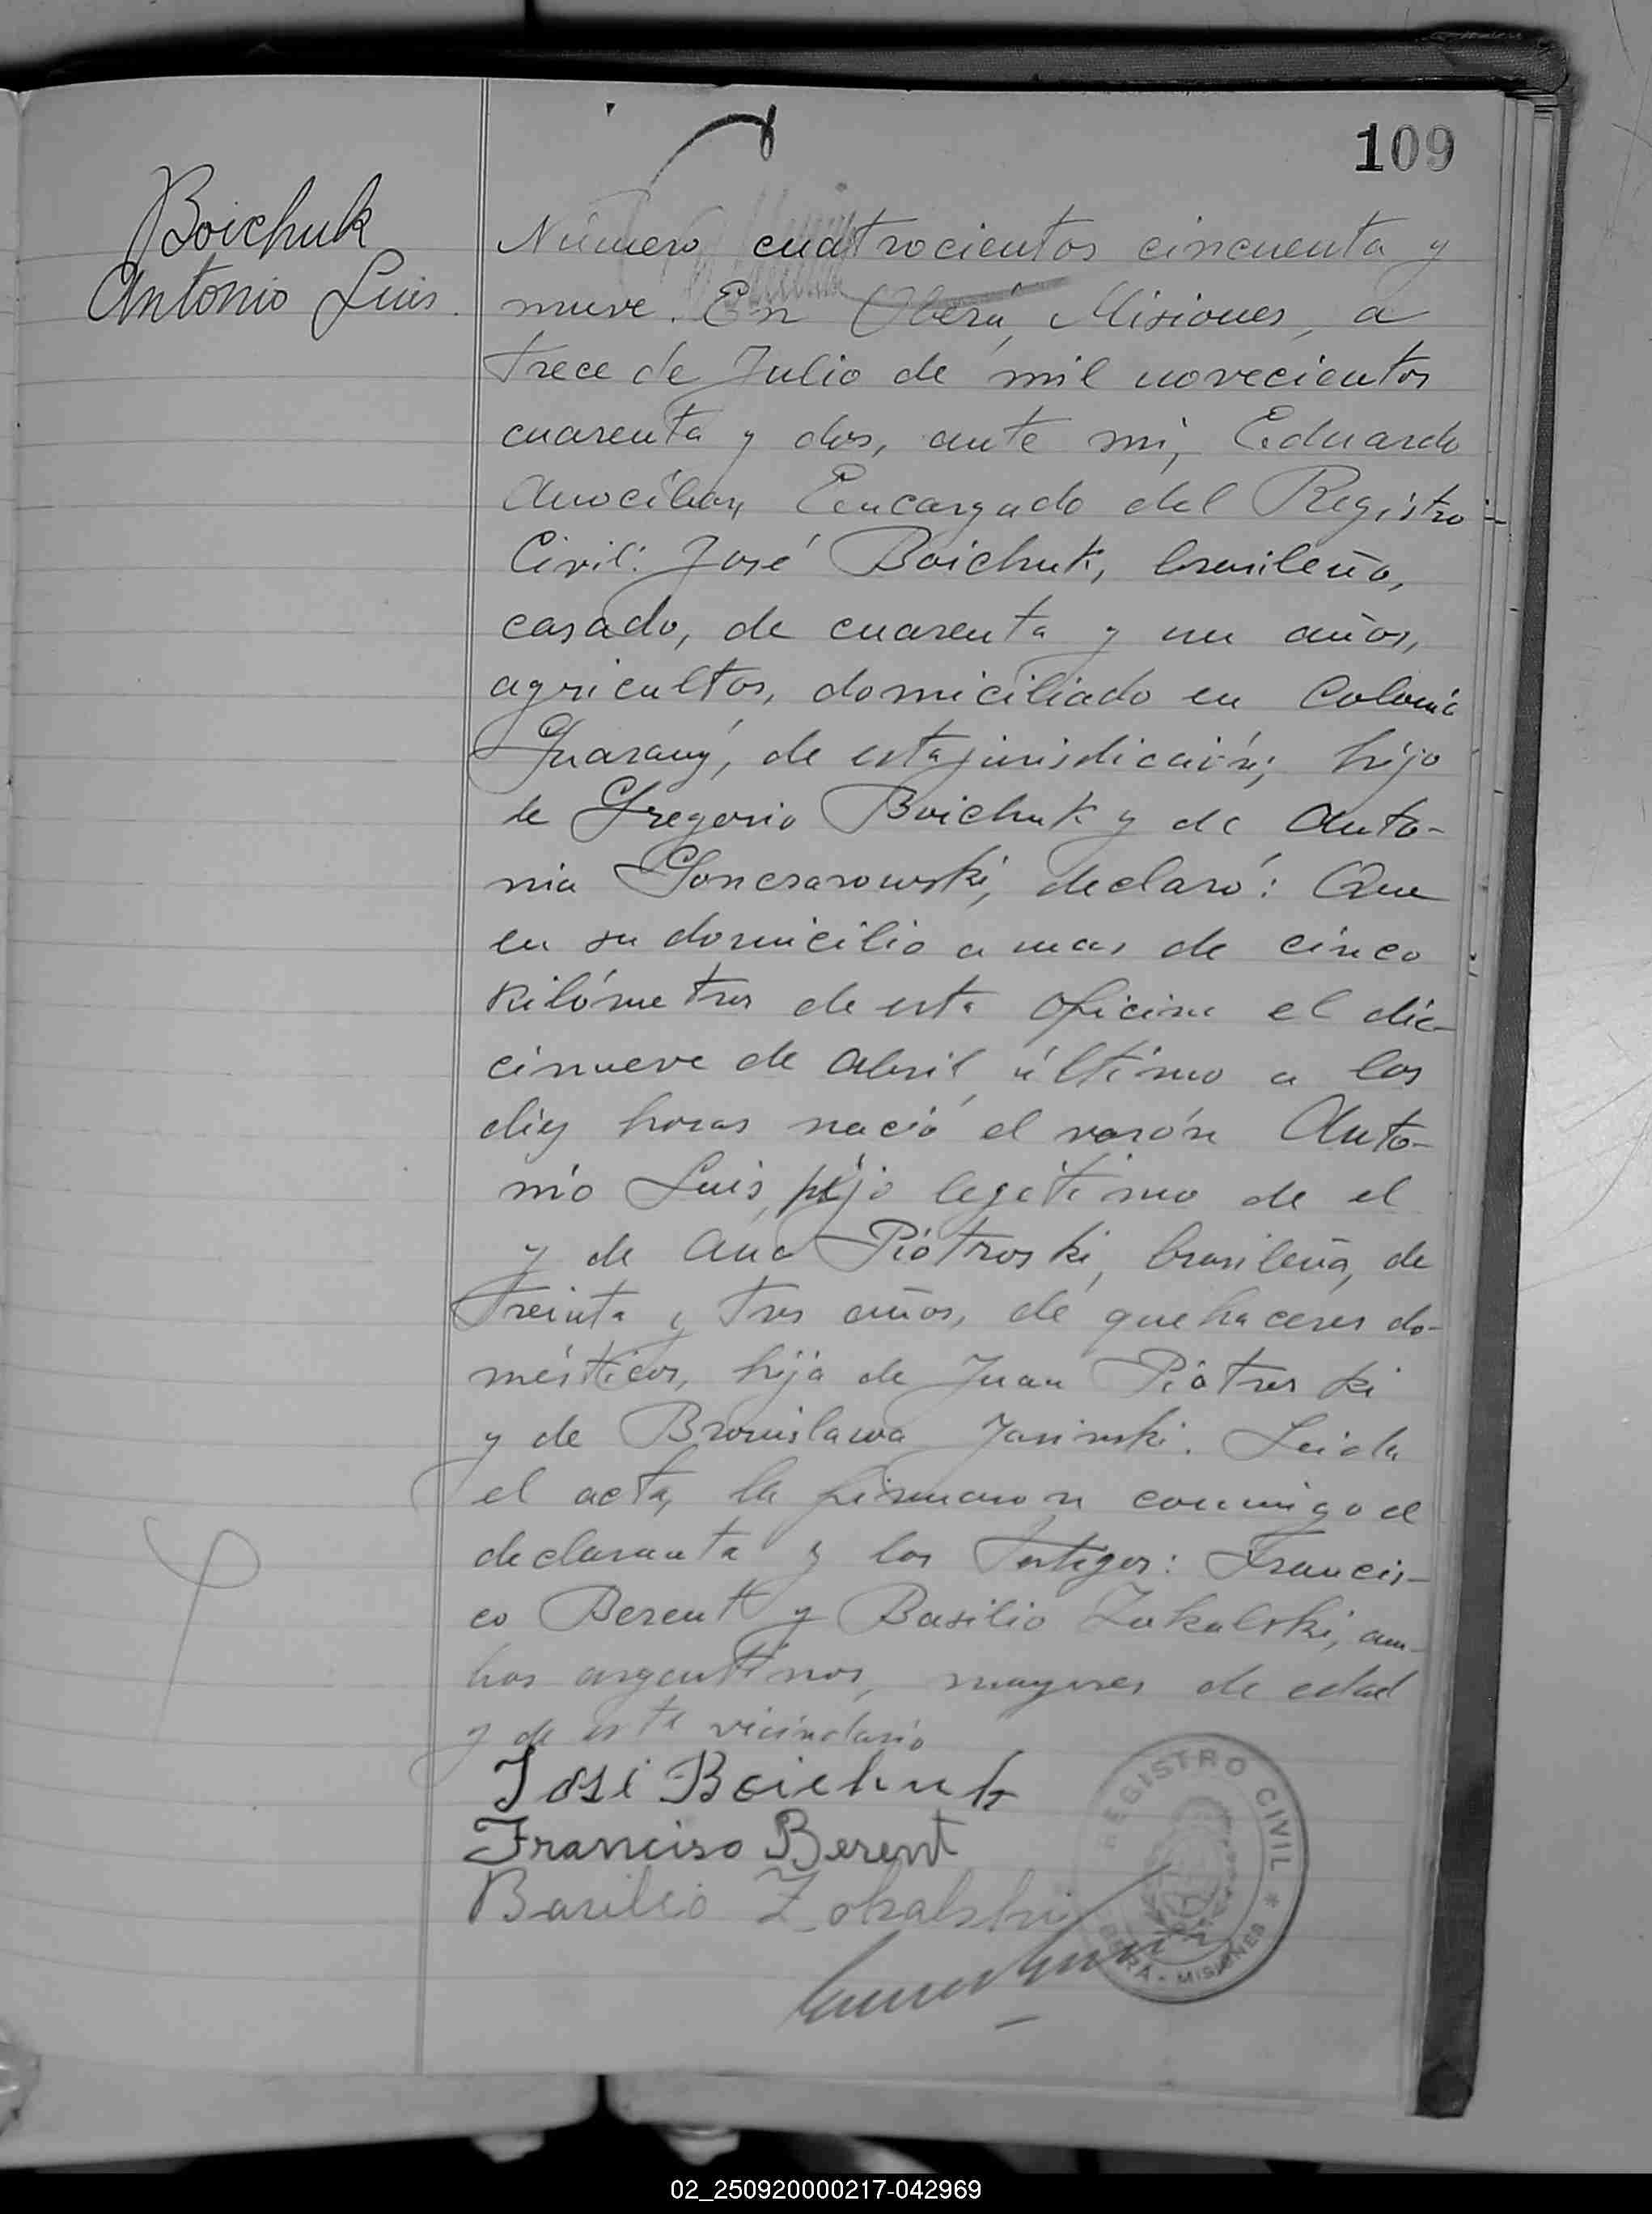 109
Boichuk
Antonio Luis.
Número cuatrocientos cincuenta y
nueve. En Oberá, Misiones, a
trece de Julio de mil novecientos
cuarenta y dos, ante mi, Eduardo
Encargado del Registro
Civil: José Boichuk, brasileño,
casado, de cuarenta y un años,
agricultor, domiciliado en Colonia
Guarany, de esta jurisdicción; hijo
de Gregorio Boichuk y de Anto-
nia Gonczarowski, declaró: Que
en su domicilio a mas de cinco
kilómetros de esta oficina el die-
cinueve de Abril último a las
diez horas nació el varón Anto-
nio Luis, hijo legítimo de el
y de Ana Piotroski, brasileña, de
treinta y tres años, de quehaceres do-
mésticos, hija de Juan Piotroski
y de Bronislawa Jasinski. Leida
el acta, la firmaron conmigo el
declarante y los testigos: Francis-
co Berent y Basilio Zukalski, am-
bos argentinos, mayores de edad
y de este vecindario
José Boichuk
Franciso Berent
Basilio Zokalski
REGISTRO CIVIL *
OBERÁ - MISIONES
02_250920000217-042969